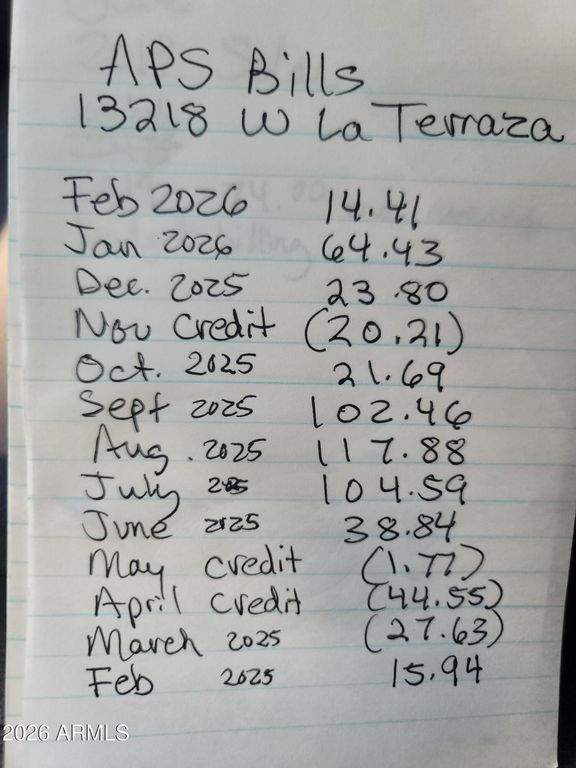 APS Bills
13218 W La Terraza
Feb 2026 14.41
Jan 2026 64.43
Dec. 2025 23.80
Nov Credit (20.21)
Oct. 2025 21.69
Sept 2025 102.46
Aug. 2025 117.88
July 2025 104.59
June 2025 38.84
May credit (1.77)
April Credit (44.55)
March 2025 (27.63)
Feb 2025 15.94
2026 ARMLS